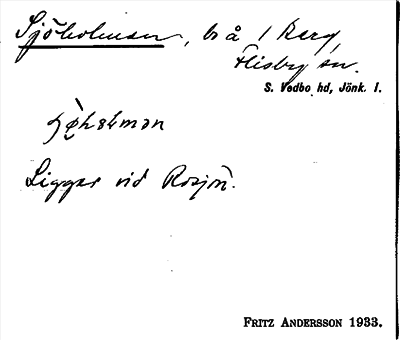 Sjöholmen, bs å 1 Berg,
Flisby sn.
S. Vedbo hd, Jönk. l.
Ligger vid Rosjön.
FRITZ ANDERSSON 1933.